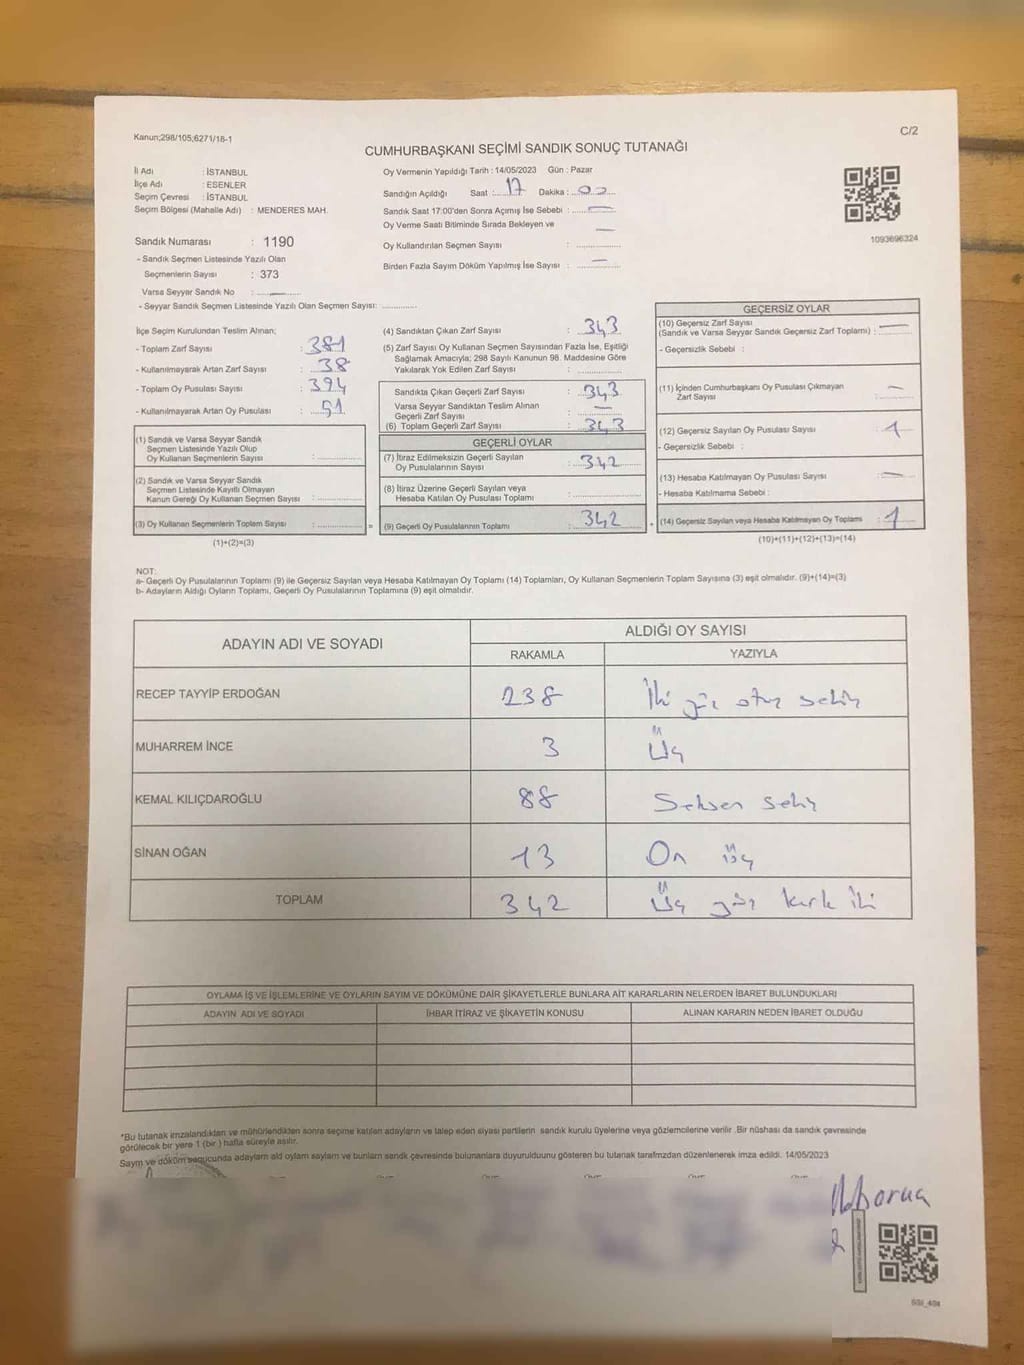 Kanun;298/105;6271/18-1
C/2
CUMHURBAŞKANI SEÇİMİ SANDIK SONUÇ TUTANAĞI
İl Adı : İSTANBUL
İlçe Adı : ESENLER
Seçim Çevresi : İSTANBUL
Seçim Bölgesi (Mahalle Adı) : MENDERES MAH.
Oy Vermenin Yapıldığı Tarih : 14/05/2023 Gün : Pazar
Sandığın Açıldığı Saat : 17 Dakika : 00
Sandık Saat 17:00'den Sonra Açımış İse Sebebi : —
Oy Verme Saati Bitiminde Sırada Bekleyen ve —
Oy Kullandırılan Seçmen Sayısı :
Birden Fazla Sayım Döküm Yapılmış İse Sayısı : —
1093696324
Sandık Numarası : 1190
- Sandık Seçmen Listesinde Yazılı Olan
Seçmenlerin Sayısı : 373
Varsa Seyyar Sandık No : —
- Seyyar Sandık Seçmen Listesinde Yazılı Olan Seçmen Sayısı:
İlçe Seçim Kurulundan Teslim Alınan;
- Toplam Zarf Sayısı : 381
- Kullanılmayarak Artan Zarf Sayısı : 38
- Toplam Oy Pusulası Sayısı : 394
- Kullanılmayarak Artan Oy Pusulası : 51
(1) Sandık ve Varsa Seyyar Sandık
Seçmen Listesinde Yazılı Olup
Oy Kullanan Seçmenlerin Sayısı :
(2) Sandık ve Varsa Seyyar Sandık
Seçmen Listesinde Kayıtlı Olmayan
Kanun Gereği Oy Kullanan Seçmen Sayısı :
(3) Oy Kullanan Seçmenlerin Toplam Sayısı : =
(1)+(2)=(3)
(4) Sandıktan Çıkan Zarf Sayısı : 343
(5) Zarf Sayısı Oy Kullanan Seçmen Sayısından Fazla İse, Eşitliği
Sağlamak Amacıyla; 298 Sayılı Kanunun 98. Maddesine Göre
Yakılarak Yok Edilen Zarf Sayısı :
Sandıkta Çıkan Geçerli Zarf Sayısı : 343
Varsa Seyyar Sandıktan Teslim Alınan —
Geçerli Zarf Sayısı :
(6) Toplam Geçerli Zarf Sayısı : 343
GEÇERLİ OYLAR
(7) İtiraz Edilmeksizin Geçerli Sayılan : 342
Oy Pusulalarının Sayısı
(8) İtiraz Üzerine Geçerli Sayılan veya
Hesaba Katılan Oy Pusulası Toplamı :
(9) Geçerli Oy Pusulalarının Toplamı : 342 +
GEÇERSİZ OYLAR
(10) Geçersiz Zarf Sayısı
(Sandık ve Varsa Seyyar Sandık Geçersiz Zarf Toplamı) : —
- Geçersizlik Sebebi :
(11) İçinden Cumhurbaşkanı Oy Pusulası Çıkmayan —
Zarf Sayısı :
(12) Geçersiz Sayılan Oy Pusulası Sayısı : 1
- Geçersizlik Sebebi :
(13) Hesaba Katılmayan Oy Pusulası Sayısı : —
- Hesaba Katılmama Sebebi :
(14) Geçersiz Sayılan veya Hesaba Katılmayan Oy Toplamı : 1
(10)+(11)+(12)+(13)=(14)
NOT:
a- Geçerli Oy Pusulalarının Toplamı (9) ile Geçersiz Sayılan veya Hesaba Katılmayan Oy Toplamı (14) Toplamları, Oy Kullanan Seçmenlerin Toplam Sayısına (3) eşit olmalıdır. (9)+(14)=(3)
b- Adayların Aldığı Oyların Toplamı, Geçerli Oy Pusulalarının Toplamına (9) eşit olmalıdır.
ADAYIN ADI VE SOYADI
ALDIĞI OY SAYISI
RAKAMLA YAZIYLA
RECEP TAYYİP ERDOĞAN 238 İki yüz otuz sekiz
MUHARREM İNCE 3 Üç
KEMAL KILIÇDAROĞLU 88 Seksen sekiz
SİNAN OĞAN 13 On üç
TOPLAM 342 Üç yüz kırk iki
OYLAMA İŞ VE İŞLEMLERİNE VE OYLARIN SAYIM VE DÖKÜMÜNE DAİR ŞİKAYETLERLE BUNLARA AİT KARARLARIN NELERDEN İBARET BULUNDUKLARI
ADAYIN ADI VE SOYADI İHBAR İTİRAZ VE ŞİKAYETİN KONUSU ALINAN KARARIN NEDEN İBARET OLDUĞU
*Bu tutanak imzalandıktan ve mühürlendikten sonra seçime katılan adayların ve talep eden siyasi partilerin sandık kurulu üyelerine veya gözlemcilerine verilir .Bir nüshası da sandık çevresinde
götülecek bir yere 1 (bir ) hafta süreyle asılır.
Sayım ve döküm sonucunda adayların aldı oyların sayların ve bunların sandık çevresinde bulunanlara duyurulduunu gösteren bu tutanak tarafımzdan düzenlenerek imza edildi. 14/05/2023